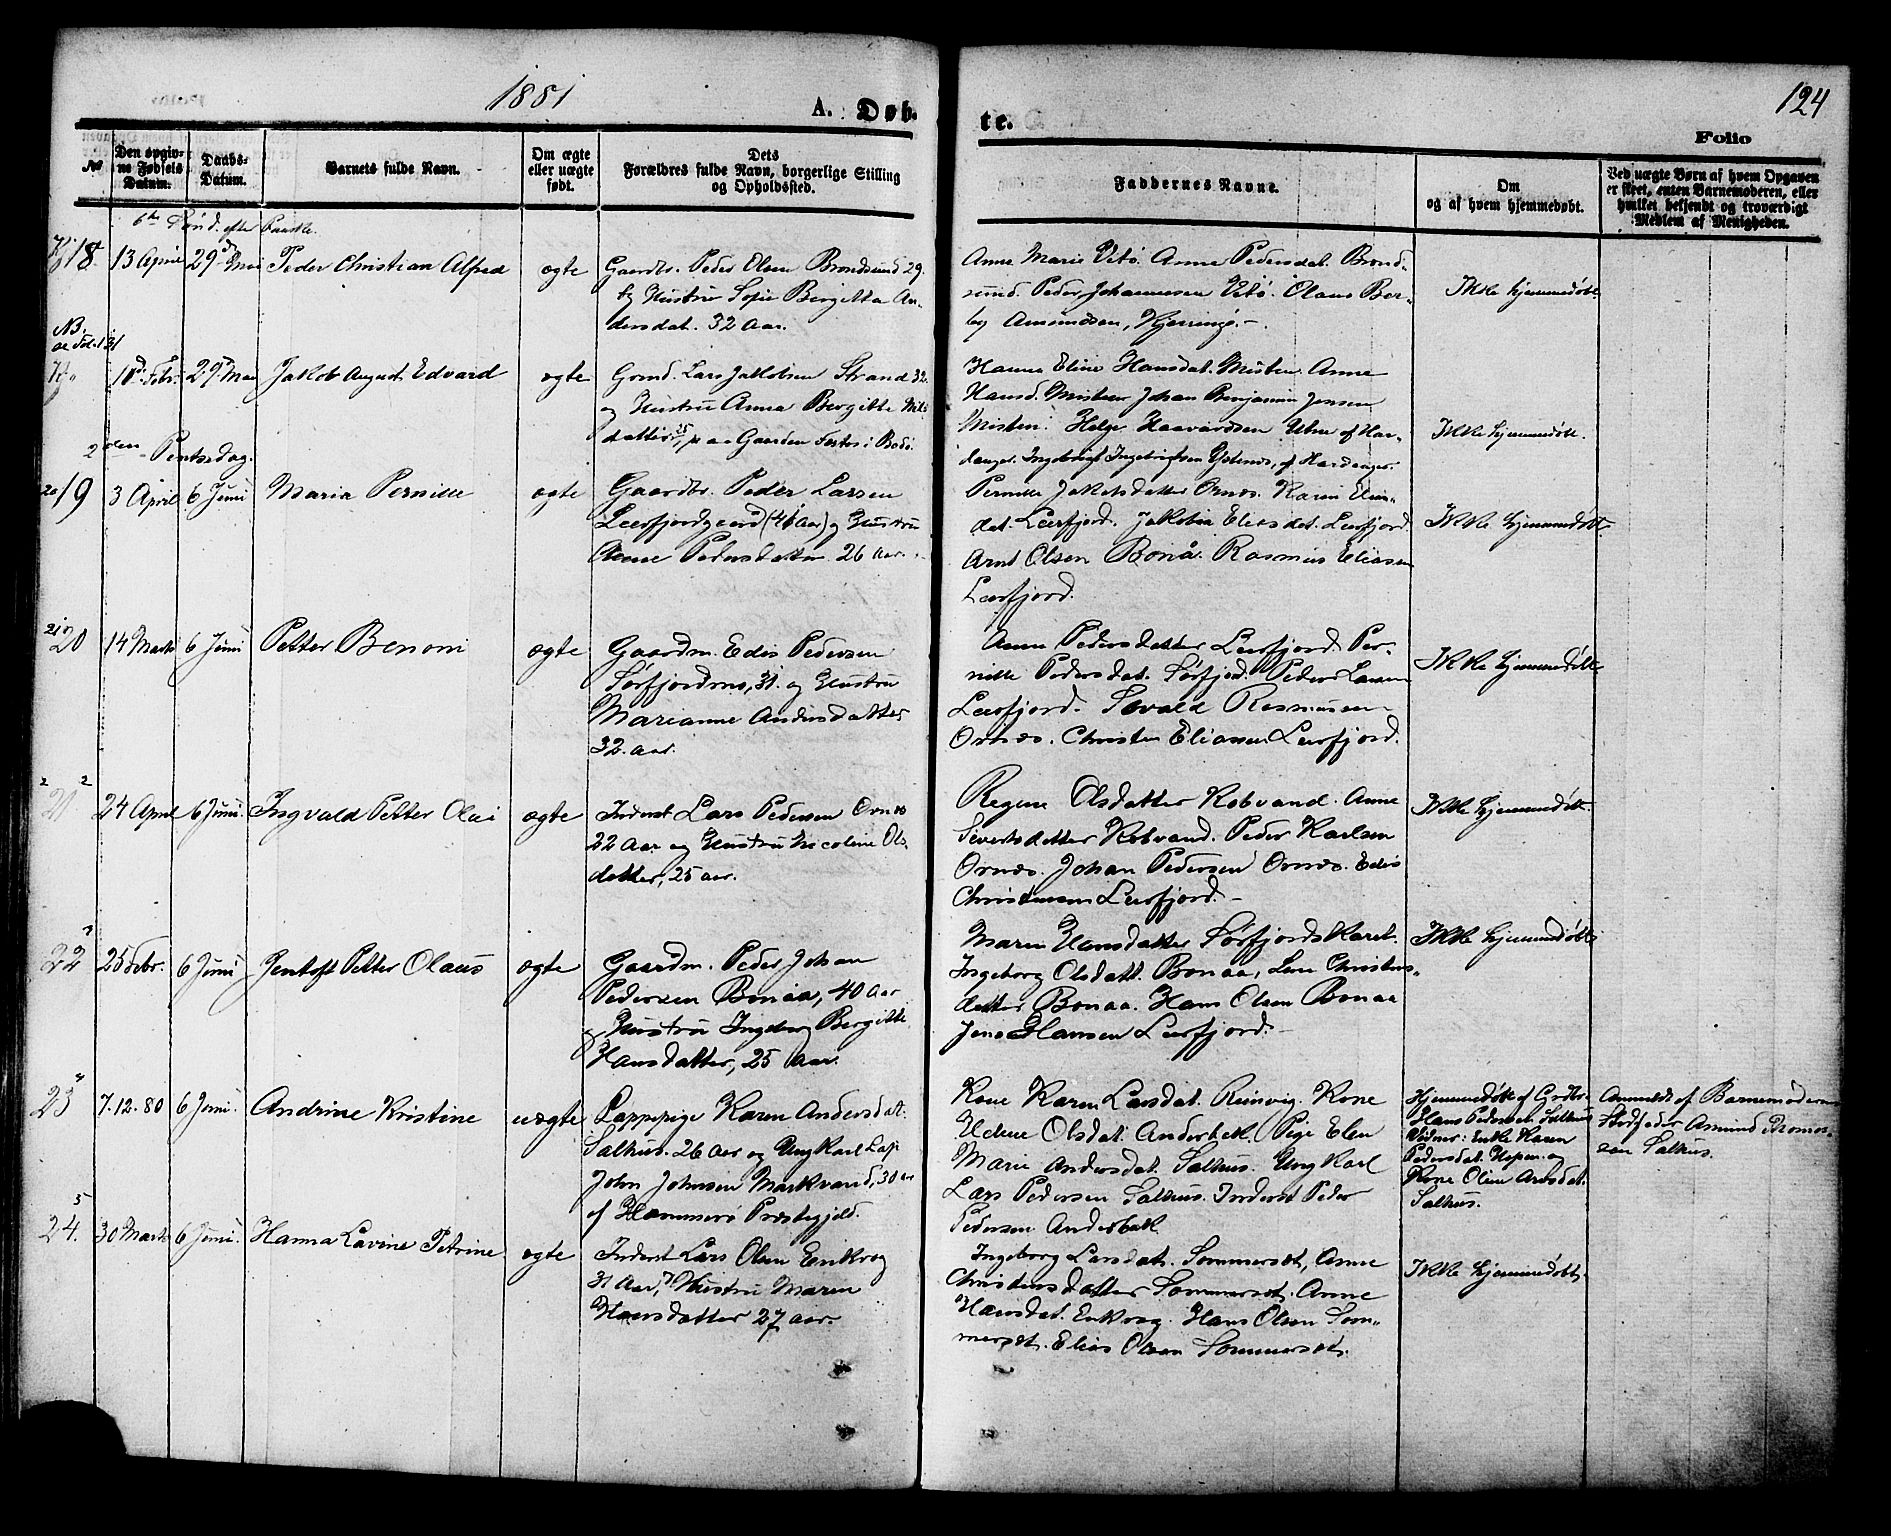 1881
A. Døb-
te.
124
Folio
№
Den opgiv-
ne Fødsels
Datum.
Daabs-
Datum.
Barnets fulde Navn.
Om ægte
eller uægte
født.
Dets
Forældres fulde Navn, borgerlige Stilling
og Opholdssted.
Faddernes Navne.
Om
og af hvem hjemmedøbt.
Ved uægte Børn af hvem Opgaven
er skeet, enten Barnemoderen, eller
hvilket bekjendt og troværdigt
Medlem af Menigheden.
6te Sønd. efter Paaske.
18
13 April
29de Mai
Peder Christian Alfred
ægte
Gaardbr. Peder Olsen Brondsund 29.
og Hustru Sofie Bergitta An-
dersdat. 32 Aar.
Anne Marie Vetø. Anna Pedersdat. Brond-
sund. Peder Johannesen Vetø. Olaus Ber-
Amundsen, Kjerringø.
Ikke hjemmedøbt.
NB.
29 Mai
Jakob August Edvard
ægte
Lars Jakobsen Strand 32.
og Hustru Anna Bergitte Nils
datter, 25, pa Gaarden i Bodø.
Hanna Eline Hansdat. Misten. Anne
Hansd. Misten Johan Benjamin Jensen
Misten. Helge Haavardsen Utne af Har-
danger. Ingebrigt Ingebrigtsen af Hardanger.
Ikke hjemmedøbt.
2den Pentsedag.
20
19
3 April
6 Juni
Maria Pernille
ægte
Gaardbr. Peder Larsen
Leerfjordgaard (46 Aar) og Hustru
Anne Pedersdatter 26 Aar.
Pernille Jakobsdatter Ornes. Karen Elias-
dat. Leerfjord. Jakobia Eliasdat. Leerfjord
Arnt Olsen Bonå. Rasmus Eliasen
Leerfjord.
Ikke hjemmedøbt
21
20
14 Marts
6 Juni
Petter Benoni
ægte
Gaardm. Edis Pedersen
Sørfjordmo, 31. og Hustru
Marianne Andersdatter
32. Aar.
Anne Pedersdatter Leerfjord. Per-
nille Pedersdat. Sørfjord. Peder Larsen
Leerfjord. Sevald Rasmussen
Ornes. Christen Eliasen Leerfjord.
Ikke hjemmedøbt
2 2
21
24 April
6 Juni
Ingvald Petter Olai
ægte
Inderst Lars Pedersen Ornes
22 Aar og Hustru Nicoline Ols-
datter, 25 Aar.
Regine Olsdatter Kobvand. Anne
Sivertsdatter Kobvand. Peder Karlsen
Ornes. Johan Pedersen Ornes. Edis
Christensen Leerfjord.
Ikke hjemmedøbt.
22
25 Febr.
6 Juni
Jentoft Petter Olaus
ægte
Gaardm. Peder Johan
Pedersen Bonaa, 40 Aar
& Hustru Ingeborg Bergitte
Hansdatter, 25 Aar.
Maren Hansdatter Sørfjordskaret.
Ingeborg Olsdatt. Bonaa, Lene Christens-
datter Bonaa. Hans Olsen Bonaa
Jens Hansen Leerfjord.
Ikke hjemmedøbt
23
7.12.80
6 Juni.
Andrine Kristine
uægte
Lappepige Karen Andersdat.
Salhus. 26 Aar og Ungkarl Lap
John Johnsen Markvand, 30 Aar
af Hammerø Præstegjeld.
Kone Karen Larsdat. Reinvig. Kone
Helene Olsdat. Anderbak. Pige Elen
Marie Andersdat. Salhus. Ungkarl
Lars Pedersen Salhus. Inderst Peder
Pedersen Anderbak
Hjemmedøbt af Grdbr.
Hans Pedersen Salhus
Vidner: Enke Karen
Pedersdat. Hopen og
Kone Olin Arnsdat.
Salhus.
Anmeldt af Barnemoderens
Stedfader Amund Thomas-
sen Salhus.
5
24.
30 Marts
6 Juni.
Hanna Lavine Petrine
ægte
Inderst Lars Olsen Enkrog
31 Aar, Hustru Maren
Hansdatter 27 Aar.
Ingeborg Larsdat. Sommerset, Anne
Christensdatter Sommerset. Anne
Hansdat. Enkrog. Hans Olsen Som-
merset. Elias Olsen Sommerset.
Ikke hjemmedøbt.